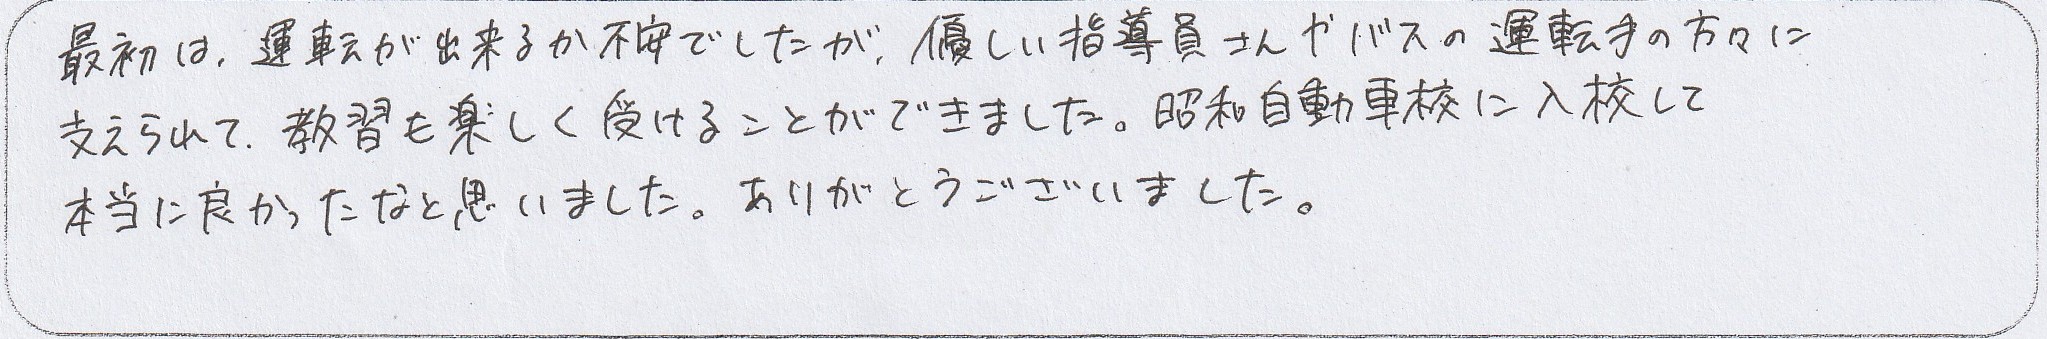 最初は、運転が出来るか不安でしたが、優しい指導員さんやバスの運転手の方々に
支えられて、教習も楽しく受けることができました。昭和自動車校に入校して
本当に良かったなと思いました。ありがとうございました。